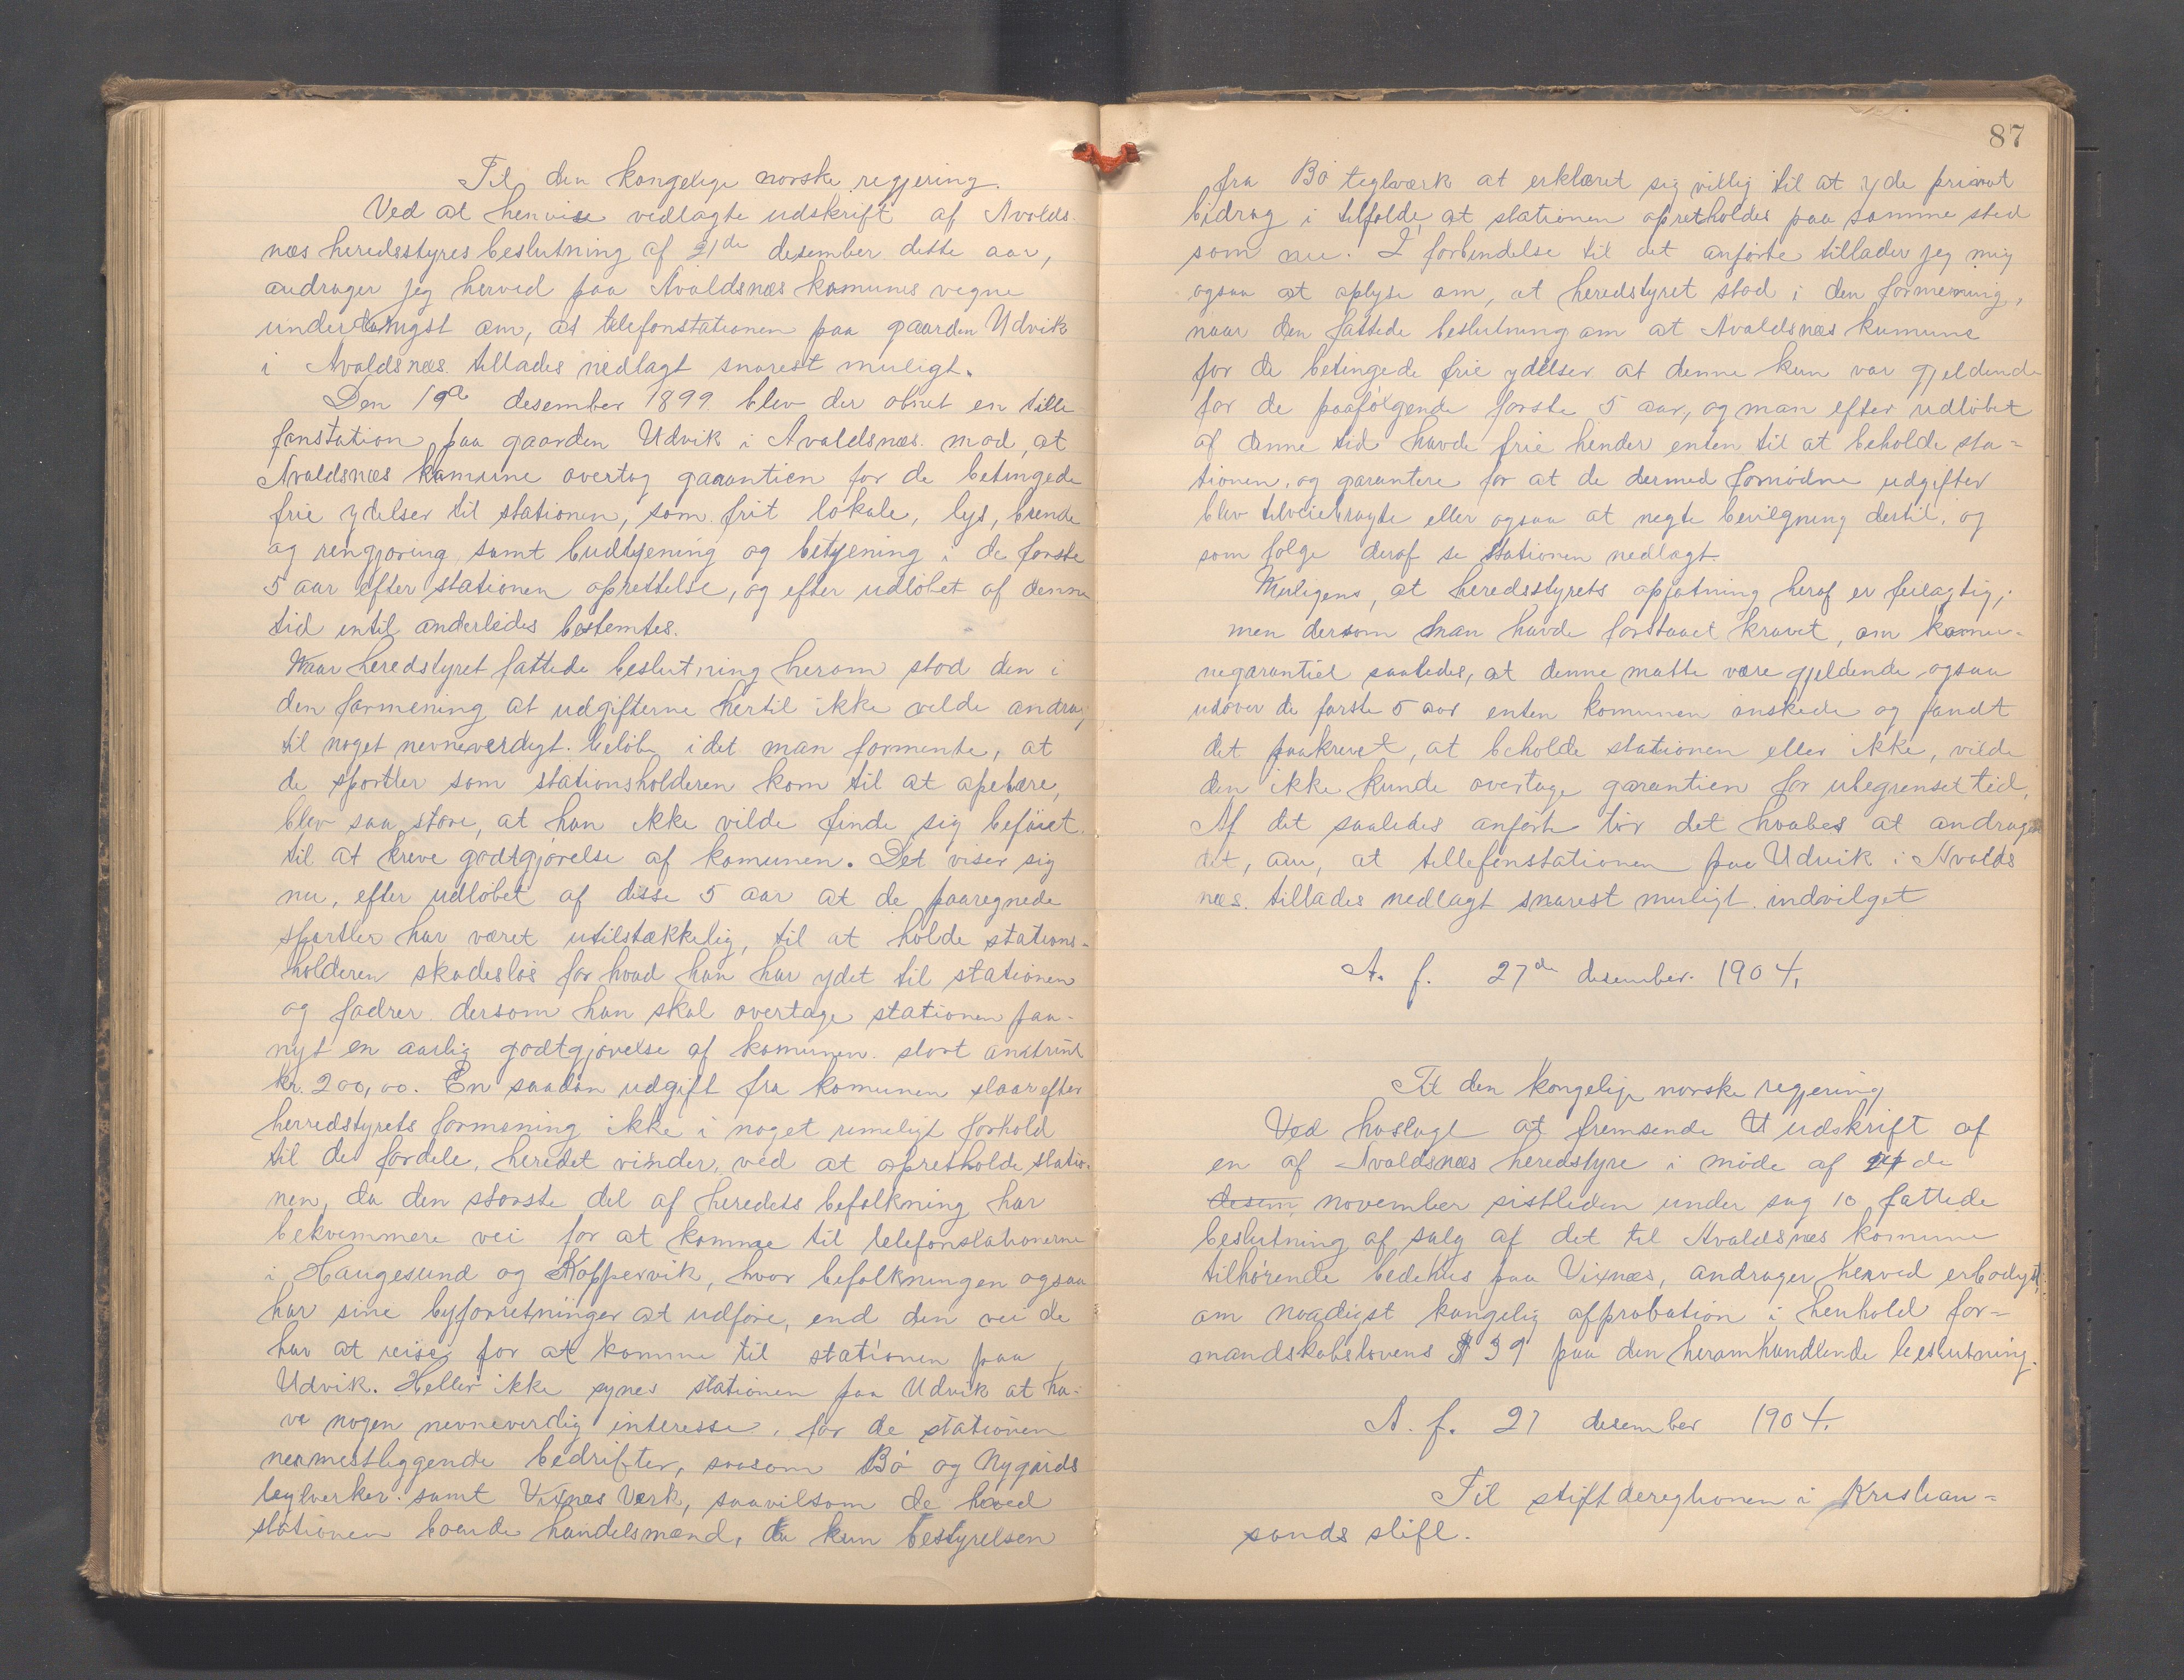 Til den kongelige norske regjering.
Ved at henvise vedlagte udskrift af Avalds-
næs heredsstyres beslutning af 21de desember dette aar,
andrager jeg herved paa Avaldsnæs komunes vegne
underdanigst om, at telefonstationen paa gaarden Udvik
i Avaldsnæs tillades nedlagt snarest muligt.
Den 19de desember 1899 blev der obnet en tille
fonstation paa gaarden Udvik i Avaldsnæs mod, at
Avaldsnæs komune overtog garantien for de betingede
frie ydelser til stationen, som frit lokale, lys, brende
og rengjøring samt budtjening og betjening i de første
5 aar efter stationen oprettelse, og efter udløbet af denne
tid intil anderledes bestemtes.
Naar heredstyret fattede beslutning herom stod den i
den formening at udgifterne hertil ikke vilde andrag
til noget nevneverdigt beløb, idet man formente, at
de sportler som stationsholderen kom til at opebære,
blev saa store, at han ikke vilde finde sig beføiet
til at kreve godtgjørelse af komunen. Det viser sig
nu, efter udløbet af disse 5 aar at de paaregnede
sportler har været utilstækkelig, til at holde stations-
holderen skadesløs for hvad han har ydet til stationen
og fodrer dersom han skal overtage stationen paa-
nyt en aarlig godtgjørelse af komunen stort
kr. 200,00. En saadan udgift fra komunen staar efter
herredstyrets formening ikke i noget rimeligt forhold
til de fordele, heredet vinder, ved at opretholde statio-
nen, da den største del af heredets befolkning har
bekvemmere vei for at komme til telefonstationerne
i Haugesund og Koppervik, hvor befolkningen ogsaa
har sine byforretninger at udføre, end den vei de
har at reise for at komme til stationen paa
Udvik. Heller ikke synes stationen paa Udvik at ha-
ve nogen nevneverdig interesse, for de stationen
nermestliggende bedrifter, saasom Bø og Nygårds
teglverker samt Vixnes Verk, saavilsom de hoved
stationen boende handelsmænd, da kun bestyrelsen
87
fra Bø teglværk at erklæret sig villig til at yde privat
bidrag i tilfælde, at stationen opretholdes paa samme sted
som nu. I forbindelse til det anførte tillader jeg mig
ogsaa at oplyse om, at heredstyret stod i den formening,
naar den fattede beslutning om at Avaldsnæs kumune
for de betingede frie ydelser at denne kun var gjeldende
for de paafølgende første 5 aar, og man efter udløbet
af denne tid havde frie hender enten til at beholde sta=
tionen, og garantere for at de dermed fornødne udgifter
blev tilveiebragte eller ogsaa at negte bevilgning dertil, og
som følge deraf se stationen nedlagt.
Muligens, at heredsstyrets opfatning heraf er feilagtig,
men dersom man havde forstaaet kravet, om komu-
negarantiel saaledes, at denne matte være gjeldende ogsaa
udover de første 5 aar enten komunen ønskede og fandt
det paakrevet, at beholde stationen eller ikke, vilde
den ikke kunde overtage garantien for ubegrenset tid,
Af det saaledes anførte tør det haabes at andragen
det, om, at tellefonstationen paa Udvik i Avalds
næs. tillades nedlagt snarest muligt indvilget
A. f. 27de desember 1904.
Til den kongelige norske regjering
Ved hoslagt at fremsende udskrift af
en af Avaldsnæs heredstyre i møde af de
desem, november sistleden under sag 10 fattede
beslutning af salg af det til Avaldsnæs komune
tilhørende bedehus paa Vixnæs, andrager herved erbødigst
om naadigst kongelig approbation i henhold for=
mandskabslovens § 39 paa den heromhandlende beslutning.
A. f. 27 desember 1904.
Til stiftdereghonen i Kristian=
sands stift.